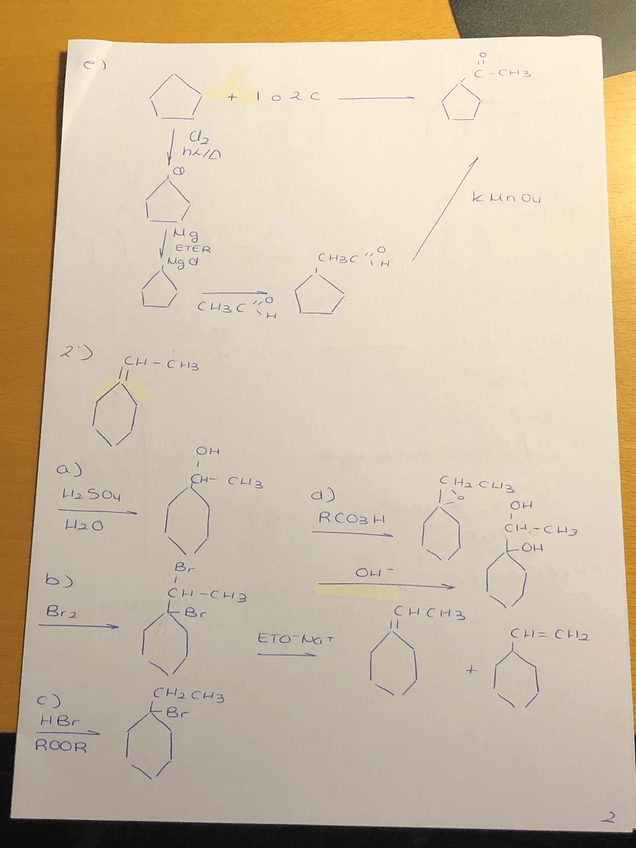 e)
O
C-CH3
+ 1 o 2 C
Cl2
hν/Δ
Cl
KMnO4
Mg
ETER
MgCl
CH3C O H
CH3C O H
2:)
CH-CH3
a)
H2SO4
H2O
OH
CH-CH3
d)
RCO3H
CH2-CH3
O
OH
CH-CH3
OH
OH-
b)
Br2
Br
CH-CH3
Br
ETO-Na+
CHCH3
+
CH=CH2
c)
HBr
ROOR
CH2CH3
Br
2